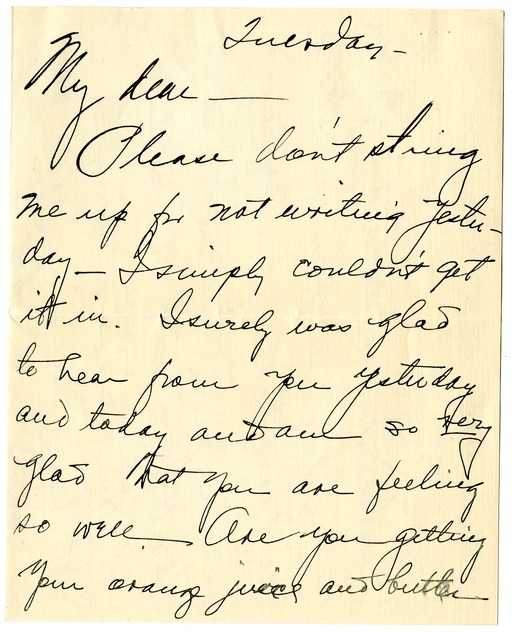 Tuesday –
My dear —
Please don't string
me up for not writing yester-
day – I simply couldn't get
it in. I surely was glad
to hear from you yesterday
and today and am so very
glad that you are feeling
so well. Are you getting
your orange juice and butter